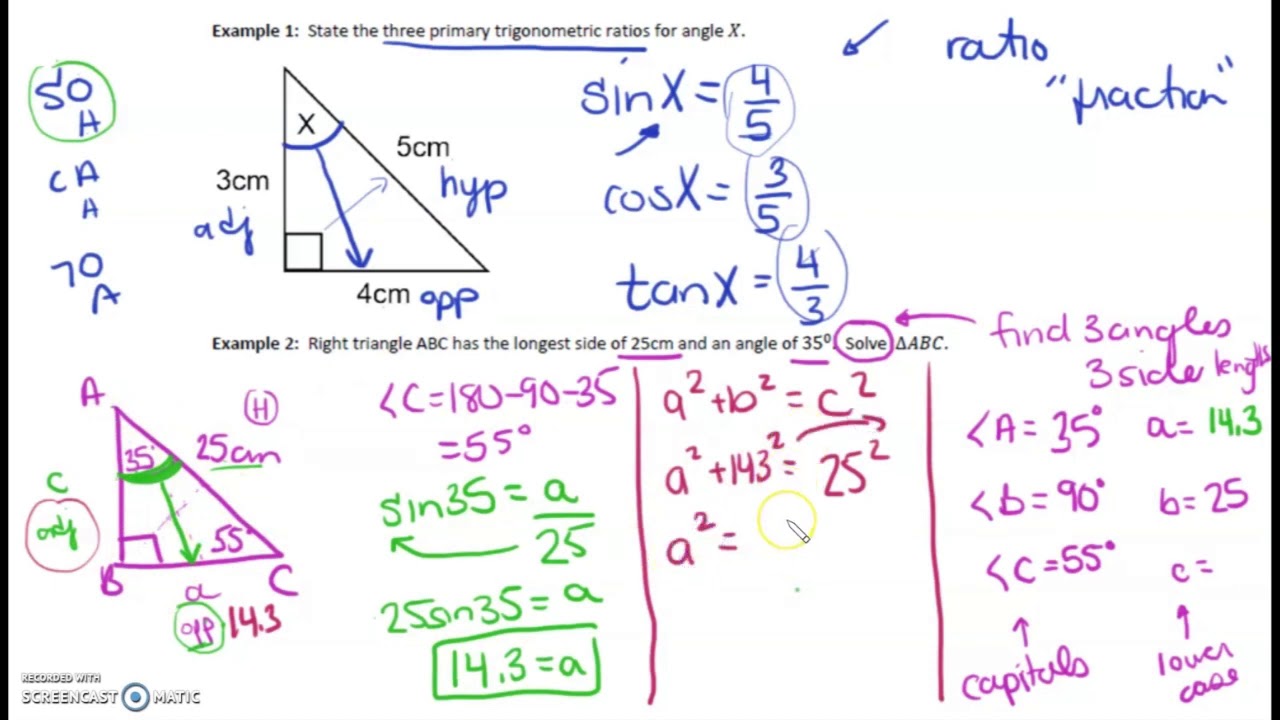 Example 1: State the three primary trigonometric ratios for angle X.
ratio
"fraction"
SO
H
CA
A
TO
A
X
5cm
hyp
3cm
adj
4cm opp
sinX = 4/5
cosX = 3/5
tanX = 4/3
Example 2: Right triangle ABC has the longest side of 25cm and an angle of 35°. Solve ΔABC.
find 3 angles
3 side lengths
A
H
35°
25cm
c
adj
55°
B
a
C
opp 14.3
<C=180-90-35
=55°
sin35 = a/25
25sin35 = a
14.3 = a
a² + b² = c²
a² + 143² = 25²
a² =
<A = 35° a = 14.3
<b = 90° b = 25
<C = 55° c =
capitals
lower
case
RECORDED WITH
SCREENCAST MATIC